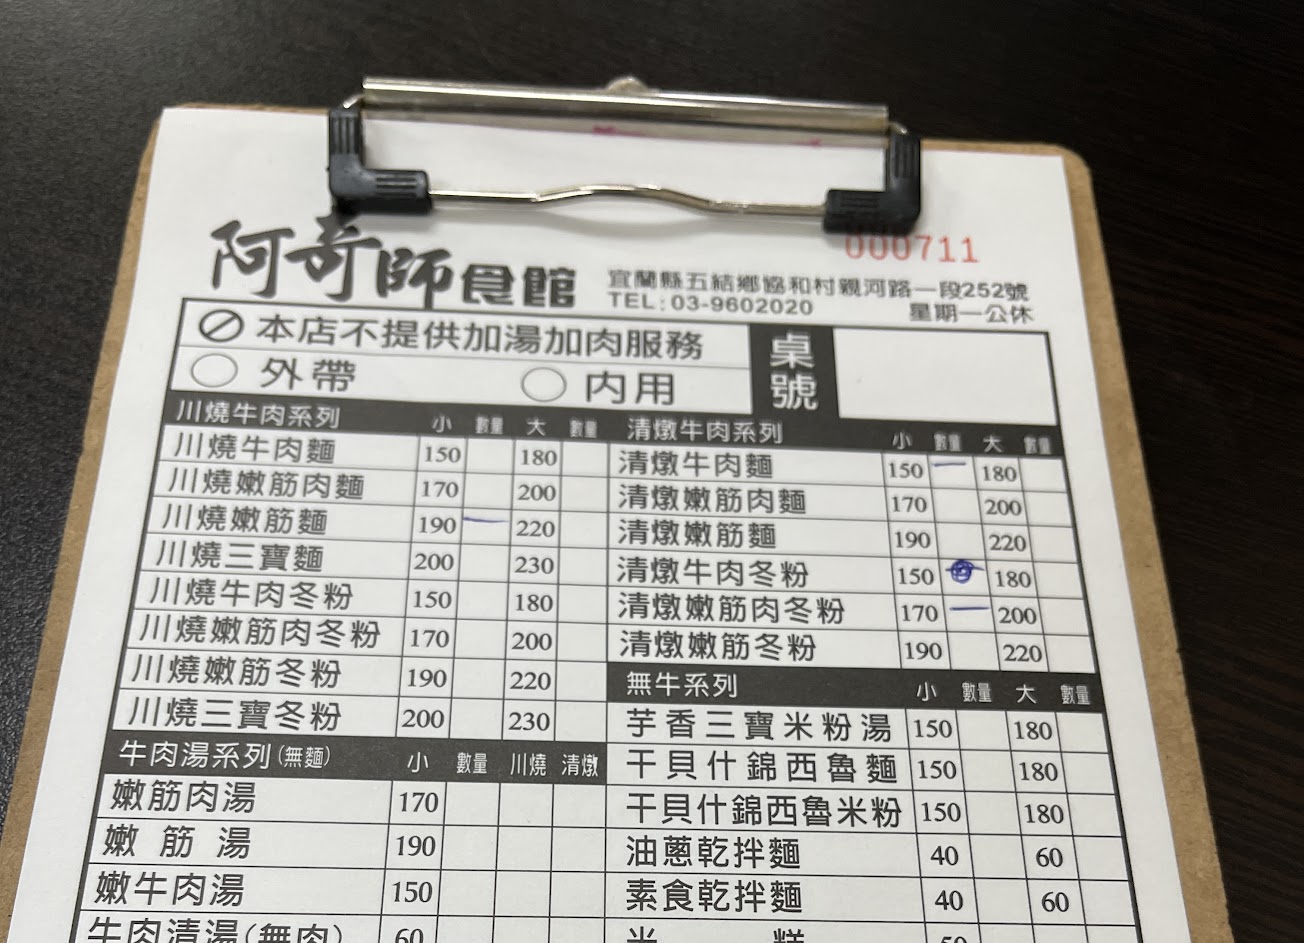 000711
阿奇師食館
宜蘭縣五結鄉協和村親河路一段252號
TEL:03-9602020 星期一公休
本店不提供加湯加肉服務
外帶 內用
桌號
川燒牛肉系列 小 數量 大 數量
川燒牛肉麵 150 180
川燒嫩筋肉麵 170 200
川燒嫩筋麵 190 一 220
川燒三寶麵 200 230
川燒牛肉冬粉 150 180
川燒嫩筋肉冬粉 170 200
川燒嫩筋冬粉 190 220
川燒三寶冬粉 200 230
牛肉湯系列(無麵) 小 數量 川燒 清燉
嫩筋肉湯 170
嫩筋湯 190
嫩牛肉湯 150
牛肉清湯(無肉) 60
清燉牛肉系列 小 數量 大 數量
清燉牛肉麵 150 一 180
清燉嫩筋肉麵 170 200
清燉嫩筋麵 190 220
清燉牛肉冬粉 150 180
清燉嫩筋肉冬粉 170 一 200
清燉嫩筋冬粉 190 220
無牛系列 小 數量 大 數量
芋香三寶米粉湯 150 180
干貝什錦西魯麵 150 180
干貝什錦西魯米粉 150 180
油蔥乾拌麵 40 60
素食乾拌麵 40 60
米糕 50